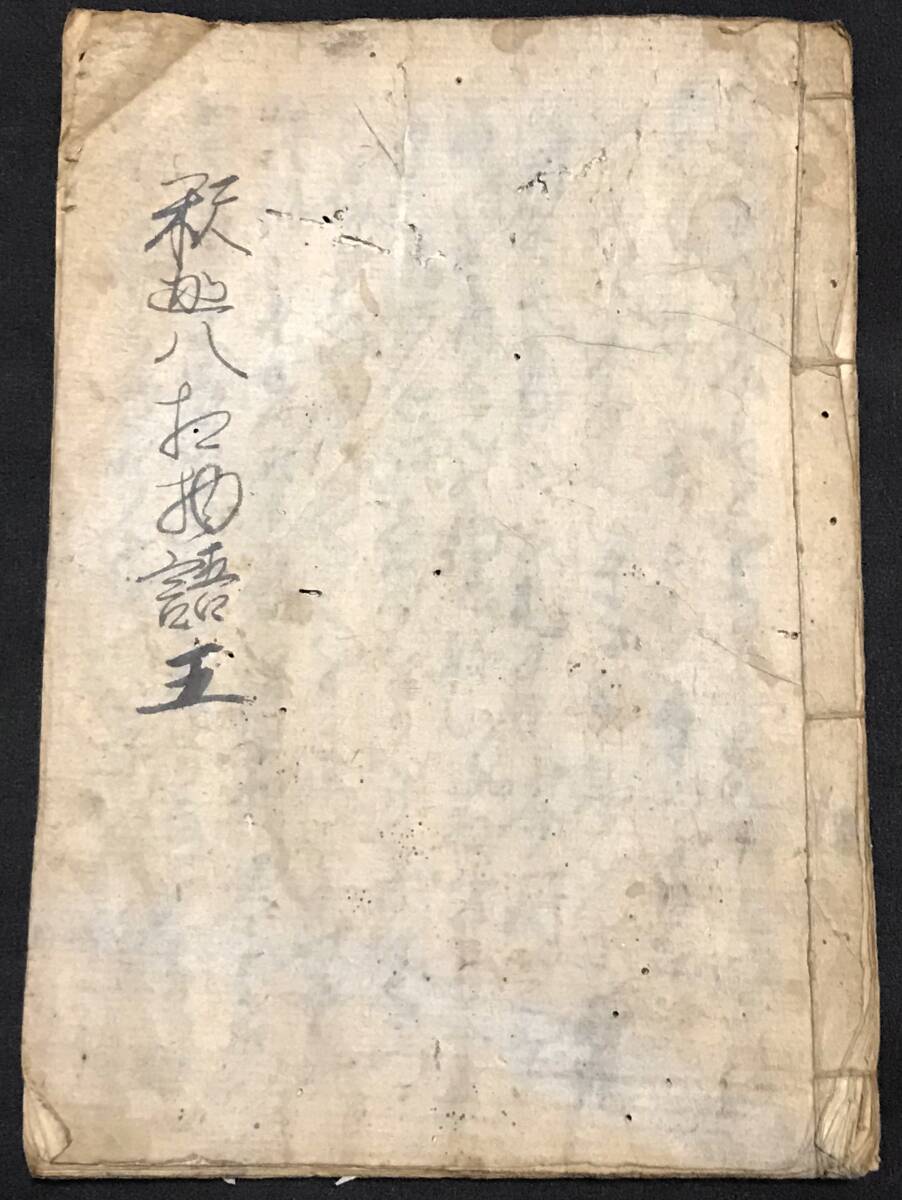 釈迦八相物語 五